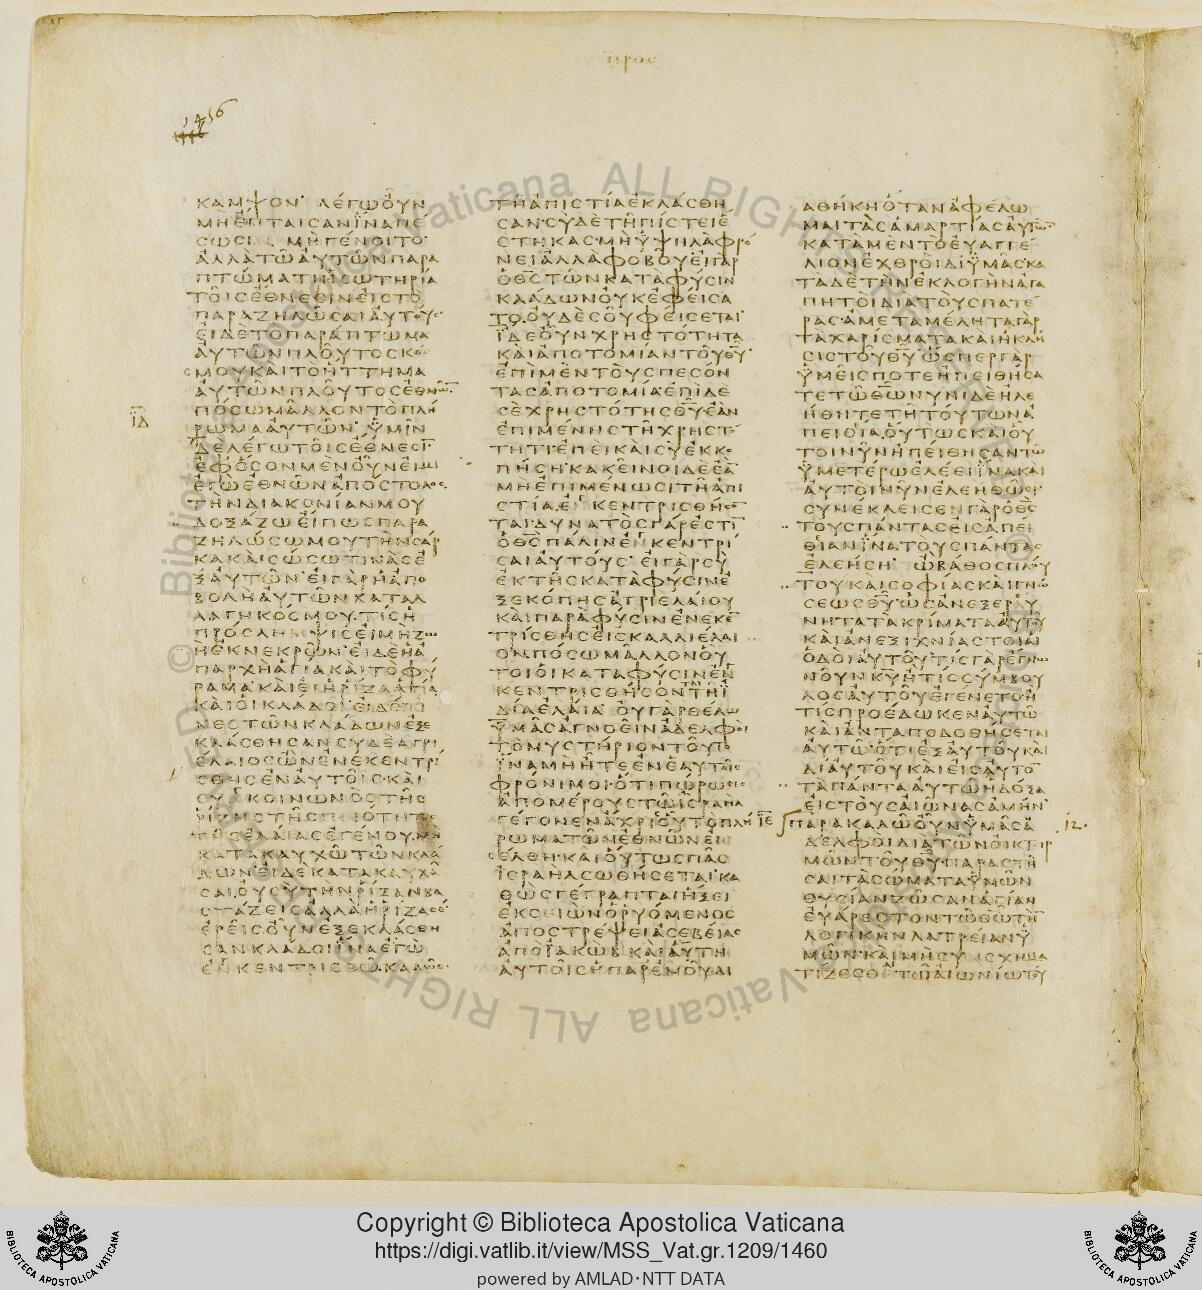 προς
1456
ΚΑΜΨΟΝ ΛΕΓΩ ΟΥΝ
ΜΗ ΕΠΤΑΙΣΑΝ ΙΝΑ ΠΕ
ΣΩΣΙΝ ΜΗ ΓΕΝΟΙΤΟ
ΑΛΛΑ ΤΩ ΑΥΤΩΝ ΠΑΡΑ
ΠΤΩΜΑΤΙ Η ΣΩΤΗΡΙΑ
ΤΟΙΣ ΕΘΝΕΣΙΝ ΕΙΣ ΤΟ
ΠΑΡΑΖΗΛΩΣΑΙ ΑΥΤΟΥΣ
ΕΙ ΔΕ ΤΟ ΠΑΡΑΠΤΩΜΑ
ΑΥΤΩΝ ΠΛΟΥΤΟΣ ΚΟ
ΣΜΟΥ ΚΑΙ ΤΟ ΗΤΤΗΜΑ
ΑΥΤΩΝ ΠΛΟΥΤΟΣ ΕΘΝΩ̅
ΙΔ
ΠΟΣΩ ΜΑΛΛΟΝ ΤΟ ΠΛΗ
ΡΩΜΑ ΑΥΤΩΝ ΥΜΙΝ
ΔΕ ΛΕΓΩ ΤΟΙΣ ΕΘΝΕΣΙ̅
ΕΦ ΟΣΟΝ ΜΕΝ ΟΥΝ ΕΙΜΙ
ΕΓΩ ΕΘΝΩΝ ΑΠΟΣΤΟΛΟΣ
ΤΗΝ ΔΙΑΚΟΝΙΑΝ ΜΟΥ
ΔΟΞΑΖΩ ΕΙ ΠΩΣ ΠΑΡΑ
ΖΗΛΩΣΩ ΜΟΥ ΤΗΝ ΣΑΡ
ΚΑ ΚΑΙ ΣΩΣΩ ΤΙΝΑΣ Ε
ΞΑΥΤΩΝ ΕΙ ΓΑΡ Η ΑΠΟ
ΒΟΛΗ ΑΥΤΩΝ ΚΑΤΑΛ
ΛΑΓΗ ΚΟΣΜΟΥ ΤΙΣ Η
ΠΡΟΣΛΗΜΨΙΣ ΕΙ ΜΗ ΖΩ
Η ΕΚ ΝΕΚΡΩΝ ΕΙ ΔΕ Η Α
ΠΑΡΧΗ ΑΓΙΑ ΚΑΙ ΤΟ ΦΥ
ΡΑΜΑ ΚΑΙ ΕΙ Η ΡΙΖΑ ΑΓΙΑ
ΚΑΙ ΟΙ ΚΛΑΔΟΙ ΕΙ ΔΕ ΤΙ
ΝΕΣ ΤΩΝ ΚΛΑΔΩΝ ΕΞΕ
ΚΛΑΣΘΗΣΑΝ ΣΥ ΔΕ ΑΓΡΙ
ΕΛΑΙΟΣ ΩΝ ΕΝΕΚΕΝΤΡΙ
ΣΘΗΣ ΕΝ ΑΥΤΟΙΣ ΚΑΙ
ΣΥΓΚΟΙΝΩΝΟΣ ΤΗΣ
ΡΙΖΗΣ ΤΗΣ ΠΙΟΤΗΤΟΣ
ΤΗΣ ΕΛΑΙΑΣ ΕΓΕΝΟΥ ΜΗ
ΚΑΤΑΚΑΥΧΩ ΤΩΝ ΚΛΑ
ΔΩΝ ΕΙ ΔΕ ΚΑΤΑΚΑΥΧΑ
ΣΑΙ ΟΥ ΣΥ ΤΗΝ ΡΙΖΑΝ ΒΑ
ΣΤΑΖΕΙΣ ΑΛΛΑ Η ΡΙΖΑ ΣΕ
ΕΡΕΙΣ ΟΥΝ ΕΞΕΚΛΑΣΘΗ
ΣΑΝ ΚΛΑΔΟΙ ΙΝΑ ΕΓΩ
ΕΝΚΕΝΤΡΙΣΘΩ ΚΑΛΩΣ
ΤΗ ΑΠΙΣΤΙΑ ΕΚΛΑΣΘΗ
ΣΑΝ ΣΥ ΔΕ ΤΗ ΠΙΣΤΕΙ Ε
ΣΤΗΚΑΣ ΜΗ ΥΨΗΛΑ ΦΡΟ
ΝΕΙ ΑΛΛΑ ΦΟΒΟΥ ΕΙ ΓΑΡ
Ο ΘΣ̅ ΤΩΝ ΚΑΤΑ ΦΥΣΙΝ
ΚΛΑΔΩΝ ΟΥΚ ΕΦΕΙΣΑ
ΤΟ ΟΥΔΕ ΣΟΥ ΦΕΙΣΕΤΑΙ
ΙΔΕ ΟΥΝ ΧΡΗΣΤΟΤΗΤΑ
ΚΑΙ ΑΠΟΤΟΜΙΑΝ ΤΟΥ ΘΥ̅
ΕΠΙ ΜΕΝ ΤΟΥΣ ΠΕΣΟΝ
ΤΑΣ ΑΠΟΤΟΜΙΑ ΕΠΙ ΔΕ
ΣΕ ΧΡΗΣΤΟΤΗΣ ΘΥ̅ ΕΑΝ
ΕΠΙΜΕΝΗΣ ΤΗ ΧΡΗΣΤΟ
ΤΗΤΙ ΕΠΕΙ ΚΑΙ ΣΥ ΕΚΚΟ
ΠΗΣΗ ΚΑΚΕΙΝΟΙ ΔΕ ΕΑ̅
ΜΗ ΕΠΙΜΕΝΩΣΙ ΤΗ ΑΠΙ
ΣΤΙΑ ΕΝΚΕΝΤΡΙΣΘΗΣΟ
ΤΑΙ ΔΥΝΑΤΟΣ ΓΑΡ ΕΣΤΙ̅
Ο ΘΣ̅ ΠΑΛΙΝ ΕΝΚΕΝΤΡΙ
ΣΑΙ ΑΥΤΟΥΣ ΕΙ ΓΑΡ ΣΥ
ΕΚ ΤΗΣ ΚΑΤΑ ΦΥΣΙΝ Ε
ΞΕΚΟΠΗΣ ΑΓΡΙΕΛΑΙΟΥ
ΚΑΙ ΠΑΡΑ ΦΥΣΙΝ ΕΝΕΚΕ̅
ΤΡΙΣΘΗΣ ΕΙΣ ΚΑΛΛΙΕΛΑΙ
ΟΝ ΠΟΣΩ ΜΑΛΛΟΝ ΟΥ
ΤΟΙ ΟΙ ΚΑΤΑ ΦΥΣΙΝ ΕΝ
ΚΕΝΤΡΙΣΘΗΣΟΝΤΑΙ ΤΗ Ι
ΔΙΑ ΕΛΑΙΑ ΟΥ ΓΑΡ ΘΕΛΩ
ΥΜΑΣ ΑΓΝΟΕΙΝ ΑΔΕΛΦΟΙ
ΤΟ ΜΥΣΤΗΡΙΟΝ ΤΟΥΤΟ
ΙΝΑ ΜΗ ΗΤΕ ΕΝ ΕΑΥΤΟΙΣ
ΦΡΟΝΙΜΟΙ ΟΤΙ ΠΩΡΩΣΙΣ
ΑΠΟ ΜΕΡΟΥΣ ΤΩ ΙΣΡΑΗΛ
ΓΕΓΟΝΕΝ ΑΧΡΙ ΟΥ ΤΟ ΠΛΗ
ΡΩΜΑ ΤΩΝ ΕΘΝΩΝ ΕΙΣ
ΕΛΘΗ ΚΑΙ ΟΥΤΩΣ ΠΑΣ
ΙΣΡΑΗΛ ΣΩΘΗΣΕΤΑΙ ΚΑ
ΘΩΣ ΓΕΓΡΑΠΤΑΙ ΗΞΕΙ
ΕΚ ΣΕΙΩΝ Ο ΡΥΟΜΕΝΟΣ
ΑΠΟΣΤΡΕΨΕΙ ΑΣΕΒΕΙΑΣ
ΑΠΟ ΙΑΚΩΒ ΚΑΙ ΑΥΤΗ
ΑΥΤΟΙΣ Η ΠΑΡ ΕΜΟΥ ΔΙ
ΑΘΗΚΗ ΟΤΑΝ ΑΦΕΛΩ
ΜΑΙ ΤΑΣ ΑΜΑΡΤΙΑΣ ΑΥΤΩ̅
ΚΑΤΑ ΜΕΝ ΤΟ ΕΥΑΓΓΕ
ΛΙΟΝ ΕΧΘΡΟΙ ΔΙ ΥΜΑΣ ΚΑ
ΤΑ ΔΕ ΤΗΝ ΕΚΛΟΓΗΝ ΑΓΑ
ΠΗΤΟΙ ΔΙΑ ΤΟΥΣ ΠΑΤΕ
ΡΑΣ ΑΜΕΤΑΜΕΛΗΤΑ ΓΑΡ
ΤΑ ΧΑΡΙΣΜΑΤΑ ΚΑΙ Η ΚΛΗ
ΣΙΣ ΤΟΥ ΘΥ̅ ΩΣΠΕΡ ΓΑΡ
ΥΜΕΙΣ ΠΟΤΕ ΗΠΕΙΘΗΣΑ
ΤΕ ΤΩ ΘΩ̅ ΝΥΝΙ ΔΕ ΗΛΕ
ΗΘΗΤΕ ΤΗ ΤΟΥΤΩΝ Α
ΠΕΙΘΙΑ ΟΥΤΩΣ ΚΑΙ ΟΥ
ΤΟΙ ΝΥΝ ΗΠΕΙΘΗΣΑΝ ΤΩ
ΥΜΕΤΕΡΩ ΕΛΕΕΙ ΙΝΑ ΚΑΙ
ΑΥΤΟΙ ΝΥΝ ΕΛΕΗΘΩΣΙ
ΣΥΝΕΚΛΕΙΣΕΝ ΓΑΡ Ο ΘΣ̅
ΤΟΥΣ ΠΑΝΤΑΣ ΕΙΣ ΑΠΕΙ
ΘΙΑΝ ΙΝΑ ΤΟΥΣ ΠΑΝΤΑΣ
ΕΛΕΗΣΗ Ω ΒΑΘΟΣ ΠΛΟΥ
ΤΟΥ ΚΑΙ ΣΟΦΙΑΣ ΚΑΙ ΓΝΩ
ΣΕΩΣ ΘΥ̅ ΩΣ ΑΝΕΞΕΡΑΥ
ΝΗΤΑ ΤΑ ΚΡΙΜΑΤΑ ΑΥΤΟΥ
ΚΑΙ ΑΝΕΞΙΧΝΙΑΣΤΟΙ ΑΙ
ΟΔΟΙ ΑΥΤΟΥ ΤΙΣ ΓΑΡ ΕΓΝΩ
ΝΟΥΝ ΚΥ̅ Η ΤΙΣ ΣΥΜΒΟΥ
ΛΟΣ ΑΥΤΟΥ ΕΓΕΝΕΤΟ Η
ΤΙΣ ΠΡΟΕΔΩΚΕΝ ΑΥΤΩ
ΚΑΙ ΑΝΤΑΠΟΔΟΘΗΣΕΤΑΙ
ΑΥΤΩ ΟΤΙ ΕΞ ΑΥΤΟΥ ΚΑΙ
ΔΙ ΑΥΤΟΥ ΚΑΙ ΕΙΣ ΑΥΤΟ̅
ΤΑ ΠΑΝΤΑ ΑΥΤΩ Η ΔΟΞΑ
ΕΙΣ ΤΟΥΣ ΑΙΩΝΑΣ ΑΜΗΝ
ΙΕ ΠΑΡΑΚΑΛΩ ΟΥΝ ΥΜΑΣ Α 12.
ΔΕΛΦΟΙ ΔΙΑ ΤΩΝ ΟΙΚΤΙΡ
ΜΩΝ ΤΟΥ ΘΥ̅ ΠΑΡΑΣΤΗ
ΣΑΙ ΤΑ ΣΩΜΑΤΑ ΥΜΩΝ
ΘΥΣΙΑΝ ΖΩΣΑΝ ΑΓΙΑΝ
ΕΥΑΡΕΣΤΟΝ ΤΩ ΘΩ̅ ΤΗ̅
ΛΟΓΙΚΗΝ ΛΑΤΡΕΙΑΝ Υ
ΜΩΝ ΚΑΙ ΜΗ ΣΥΝΣΧΗΜΑ
ΤΙΖΕΣΘΕ ΤΩ ΑΙΩΝΙ ΤΟΥ
Copyright © Biblioteca Apostolica Vaticana
https://digi.vatlib.it/view/MSS_Vat.gr.1209/1460
powered by AMLAD·NTT DATA